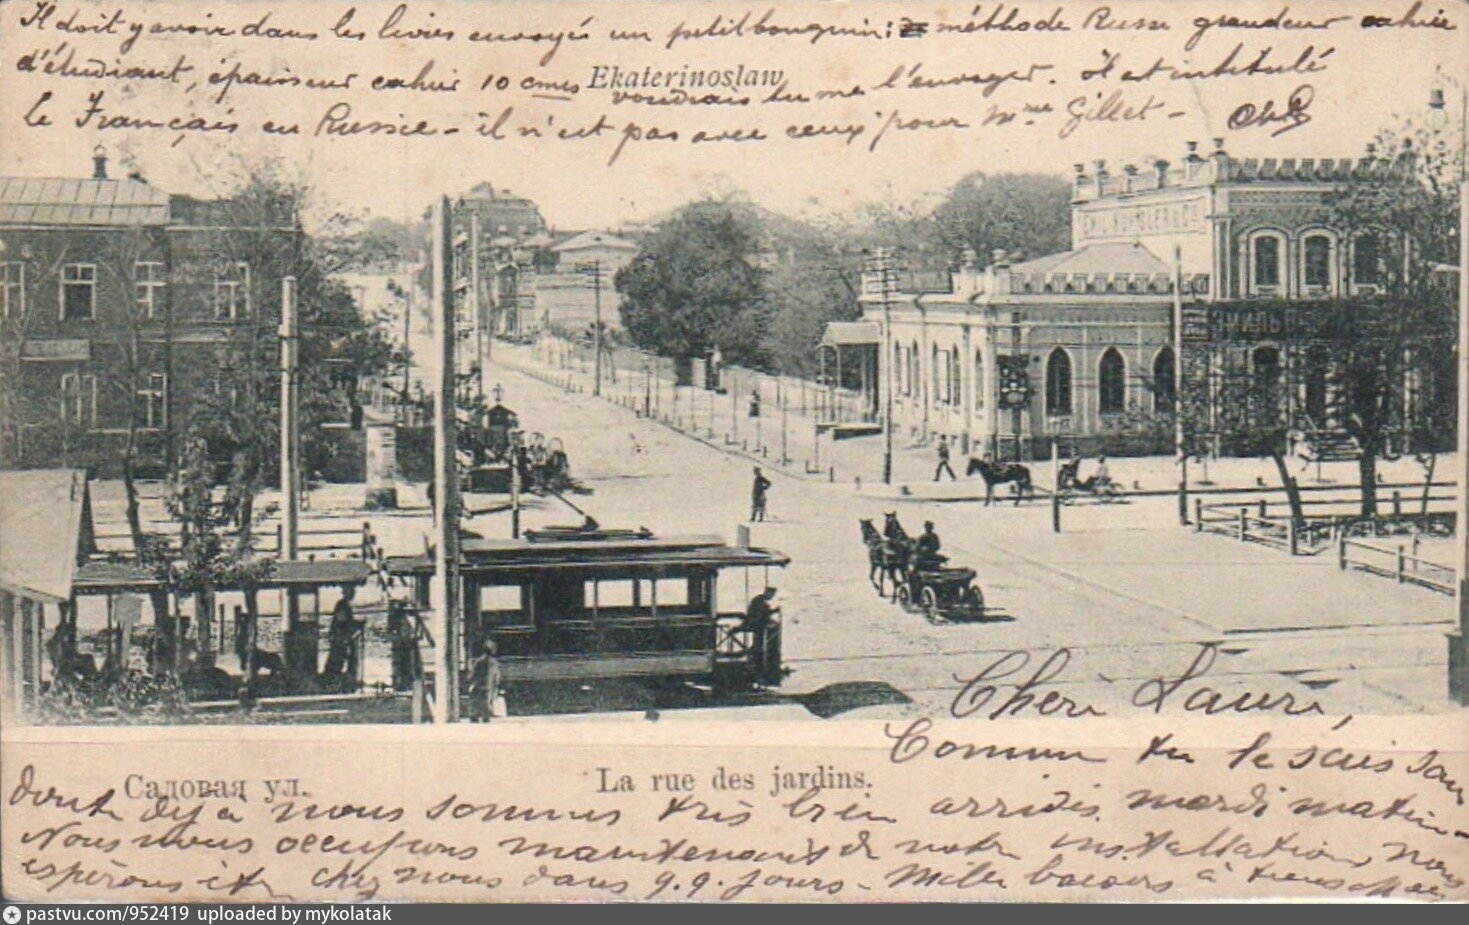 Il doit y avoir dans les livres envoyés un petit bouquin: méthode Russe grandeur cahier
d'étudiant, épaisseur cahier 10 cmes voudrais tu me l'envoyer. Il est intitulé
Ekaterinoslaw
le Français en Russie - il n'est pas avec ceux pour Mme Gillet -
EMIL
ЭМИЛЬ
Cheri Lauri,
Comme tu le sais sans
Садовая ул.
La rue des jardins.
doute déjà nous sommes très bien arrivés mardi matin -
Nous nous occupons maintenant de notre installation, nous
espérons être chez nous dans q.q. jours - Mille baisers à tous
pastvu.com/952419 uploaded by mykolatak